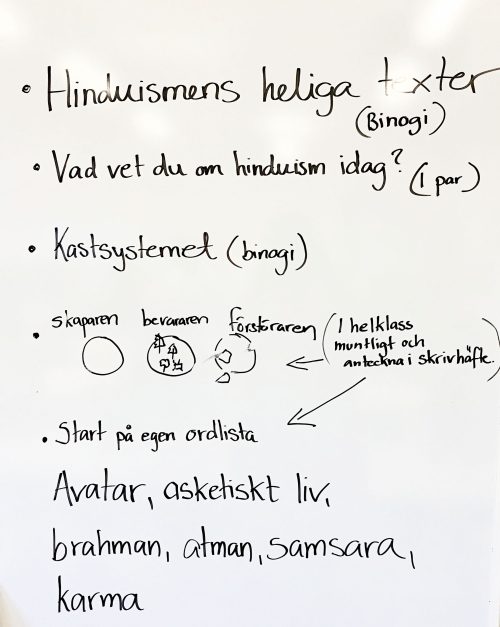 • Hinduismens heliga texter
(Binogi)
• Vad vet du om hinduism idag? (I par)
• Kastsystemet (binogi)
• skaparen bevararen förstöraren
(I helklass
muntligt och
anteckna i skrivhäfte.)
• Start på egen ordlista
Avatar, asketiskt liv,
brahman, atman, samsara,
karma